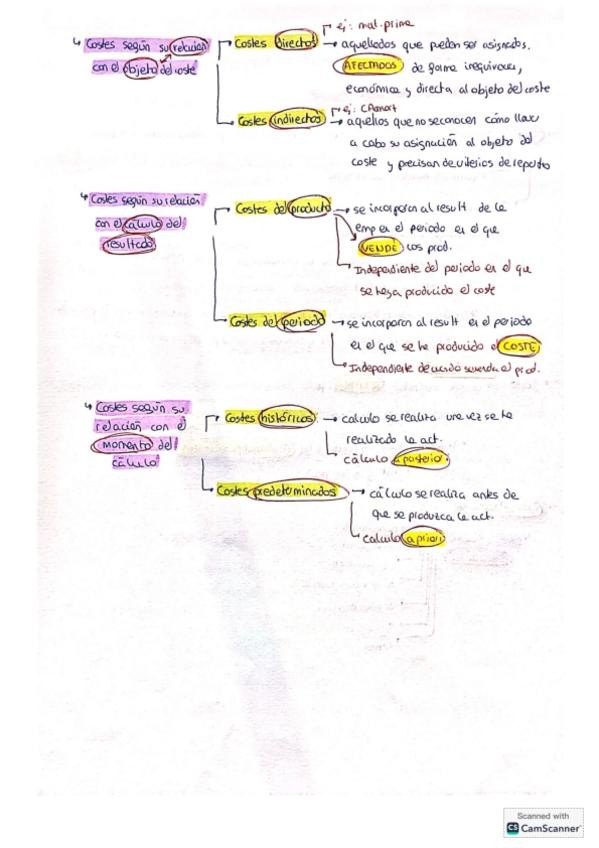 ej: mat. prima
Costes según su relación
con el objeto del coste
Costes directos
aquellados que pueden ser asignados.
AFECTADOS de forma inequívoca,
económica y directa al objeto del coste
ej: CAmort
Costes indirectos
aquellos que no se conocen cómo llevar
a cabo su asignación al objeto del
coste y precisan de criterios de reparto
Costes según su relación
con el cálculo del
resultado
Costes del producto
se incorporan al result. de la
emp en el periodo en el que
VENDE los prod.
Independiente del periodo en el que
se haya producido el coste
Costes del periodo
se incorporan al result en el periodo
en el que se ha producido el COSTE
Independiente de cuando se venda el prod.
Costes según su
relación con el
momento del
cálculo
Costes históricos
calculo se realiza una vez se ha
realizado la act.
cálculo a posteriori
Costes predeterminados
cálculo se realiza antes de
que se produzca la act.
calculo a priori
Scanned with
CS CamScanner